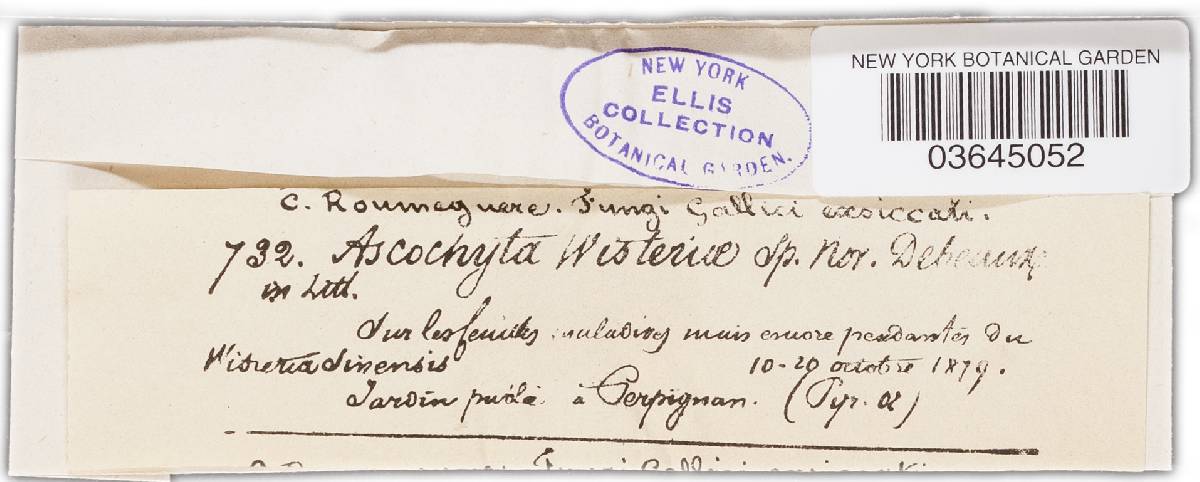 NEW YORK BOTANICAL GARDEN
03645052
NEW YORK
ELLIS
COLLECTION
BOTANICAL GARDEN.
C. Roumeguere. Fungi Gallici exsiccati.
732. Ascochyta Wisteriæ Sp. Nov. Debeaux
in Litt.
Sur les feuilles maladives mais encore pendantes du
Wisteria Sinensis 10-20 octobre 1879.
Jardin public à Perpignan. (Pyr. Or)
Fungi Gallici exsiccati